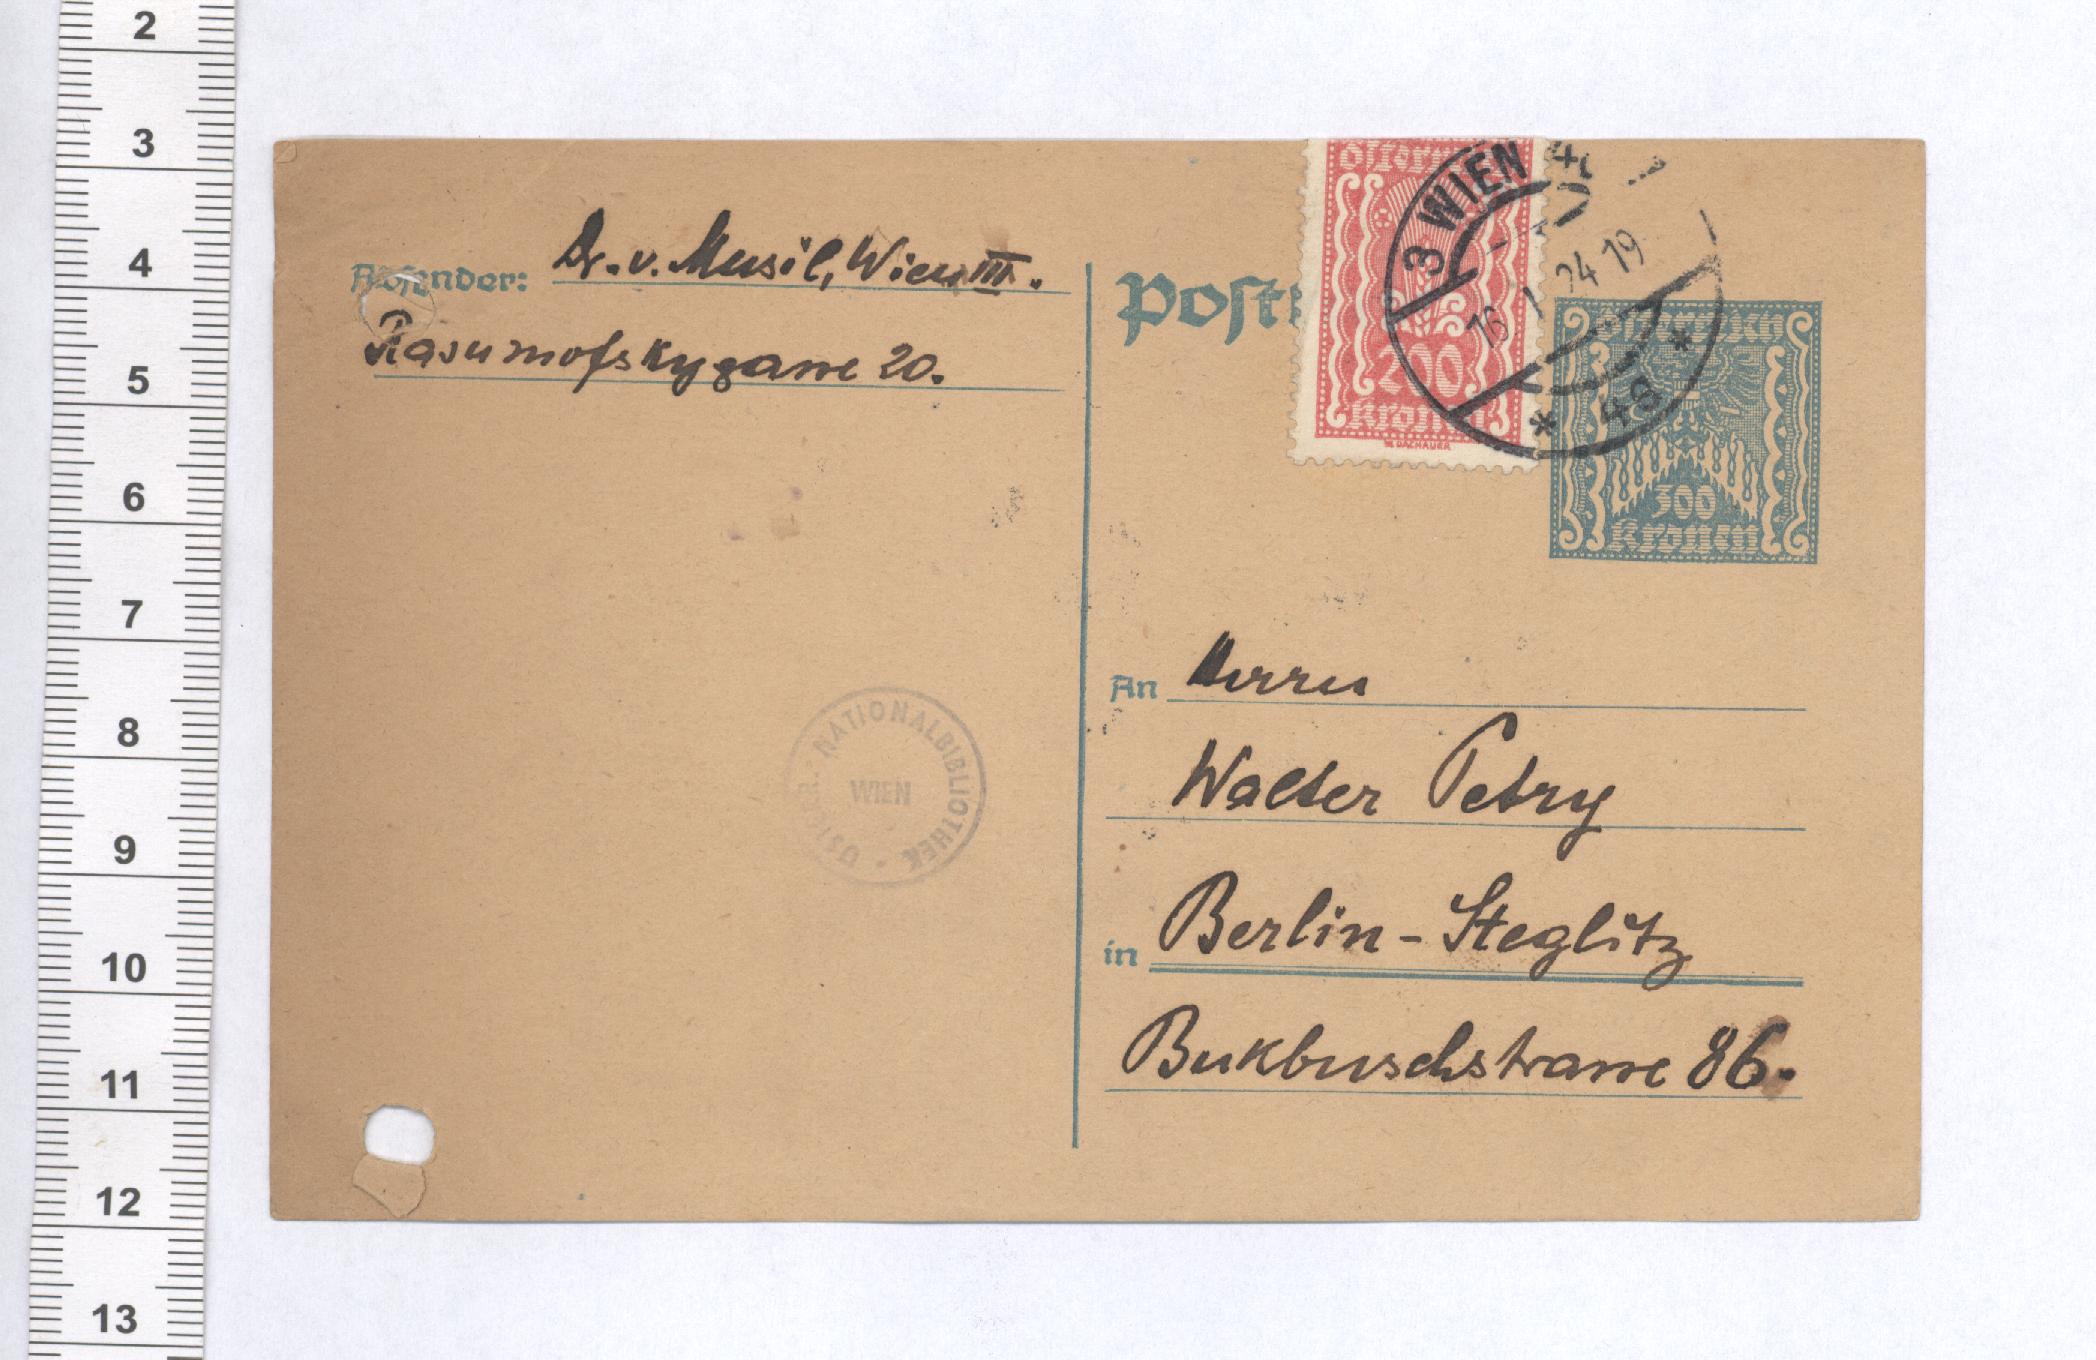 2
3
4
5
6
7
8
9
10
11
12
13
Absender: Dr. v. Musil, Wien III.
Rasumofskygasse 20.
ÖSTERR. NATIONALBIBLIOTHEK
WIEN
Postk
200
Kronen
W. DACHAUER
3 WIEN 4
16. I 24 19
* 4g *
Österreich
300
Kronen
An Herrn
Walter Petry
in Berlin-Steglitz
Bukbuschstrasse 86.